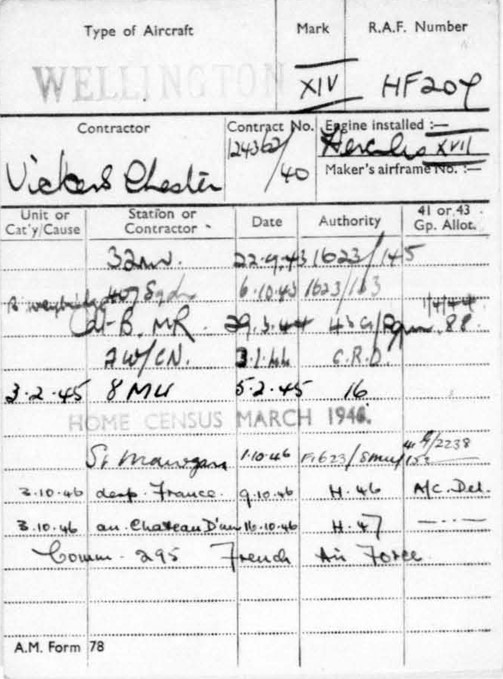 Type of Aircraft Mark R.A.F. Number
WELLINGTON XIV HF207
Contractor Contract No. Engine installed :—
Vickers Chester 124362/40 Hercules XVII
Maker's airframe No. :—
Unit or Cat'y/Cause Station or Contractor Date Authority 41 or 43 Gp. Allot.
32 MU. 22.9.43 1623/145
407 Sqdn 6.10.43 1623/163
1/4/44
MR. 29.3.44 43G/ 88.
C.R.D.
3.2.45 8 MU 5.2.45 16
HOME CENSUS MARCH 1946.
St Mawgan 1.10.46 F1623/8MU/152 41 G/2238
3.10.46 desp. France. 9.10.46 H.46 A/C. Del.
3.10.46 arr. Chateau D'un 16.10.46 H.47 -----
Comm. 295 French Air Force.
A.M. Form 78